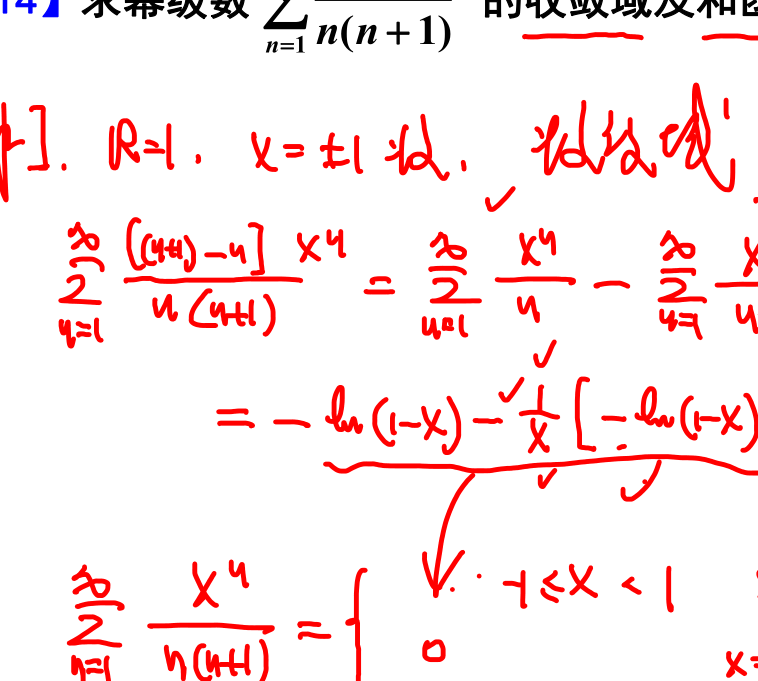 14】求幂级数 ∑_{n=1} n(n+1) 的收敛域及和
]. R=1. x=±1 收. 收敛域
∑_{n=1}^{∞} [(n+1)-n] x^n / n(n+1) = ∑_{n=1}^{∞} x^n / n - ∑_{n=1}^{∞} x
= -ln(1-x) - 1/x [-ln(1-x)
∑_{n=1}^{∞} x^n / n(n+1) = { ... -1≤x<1
0 x=